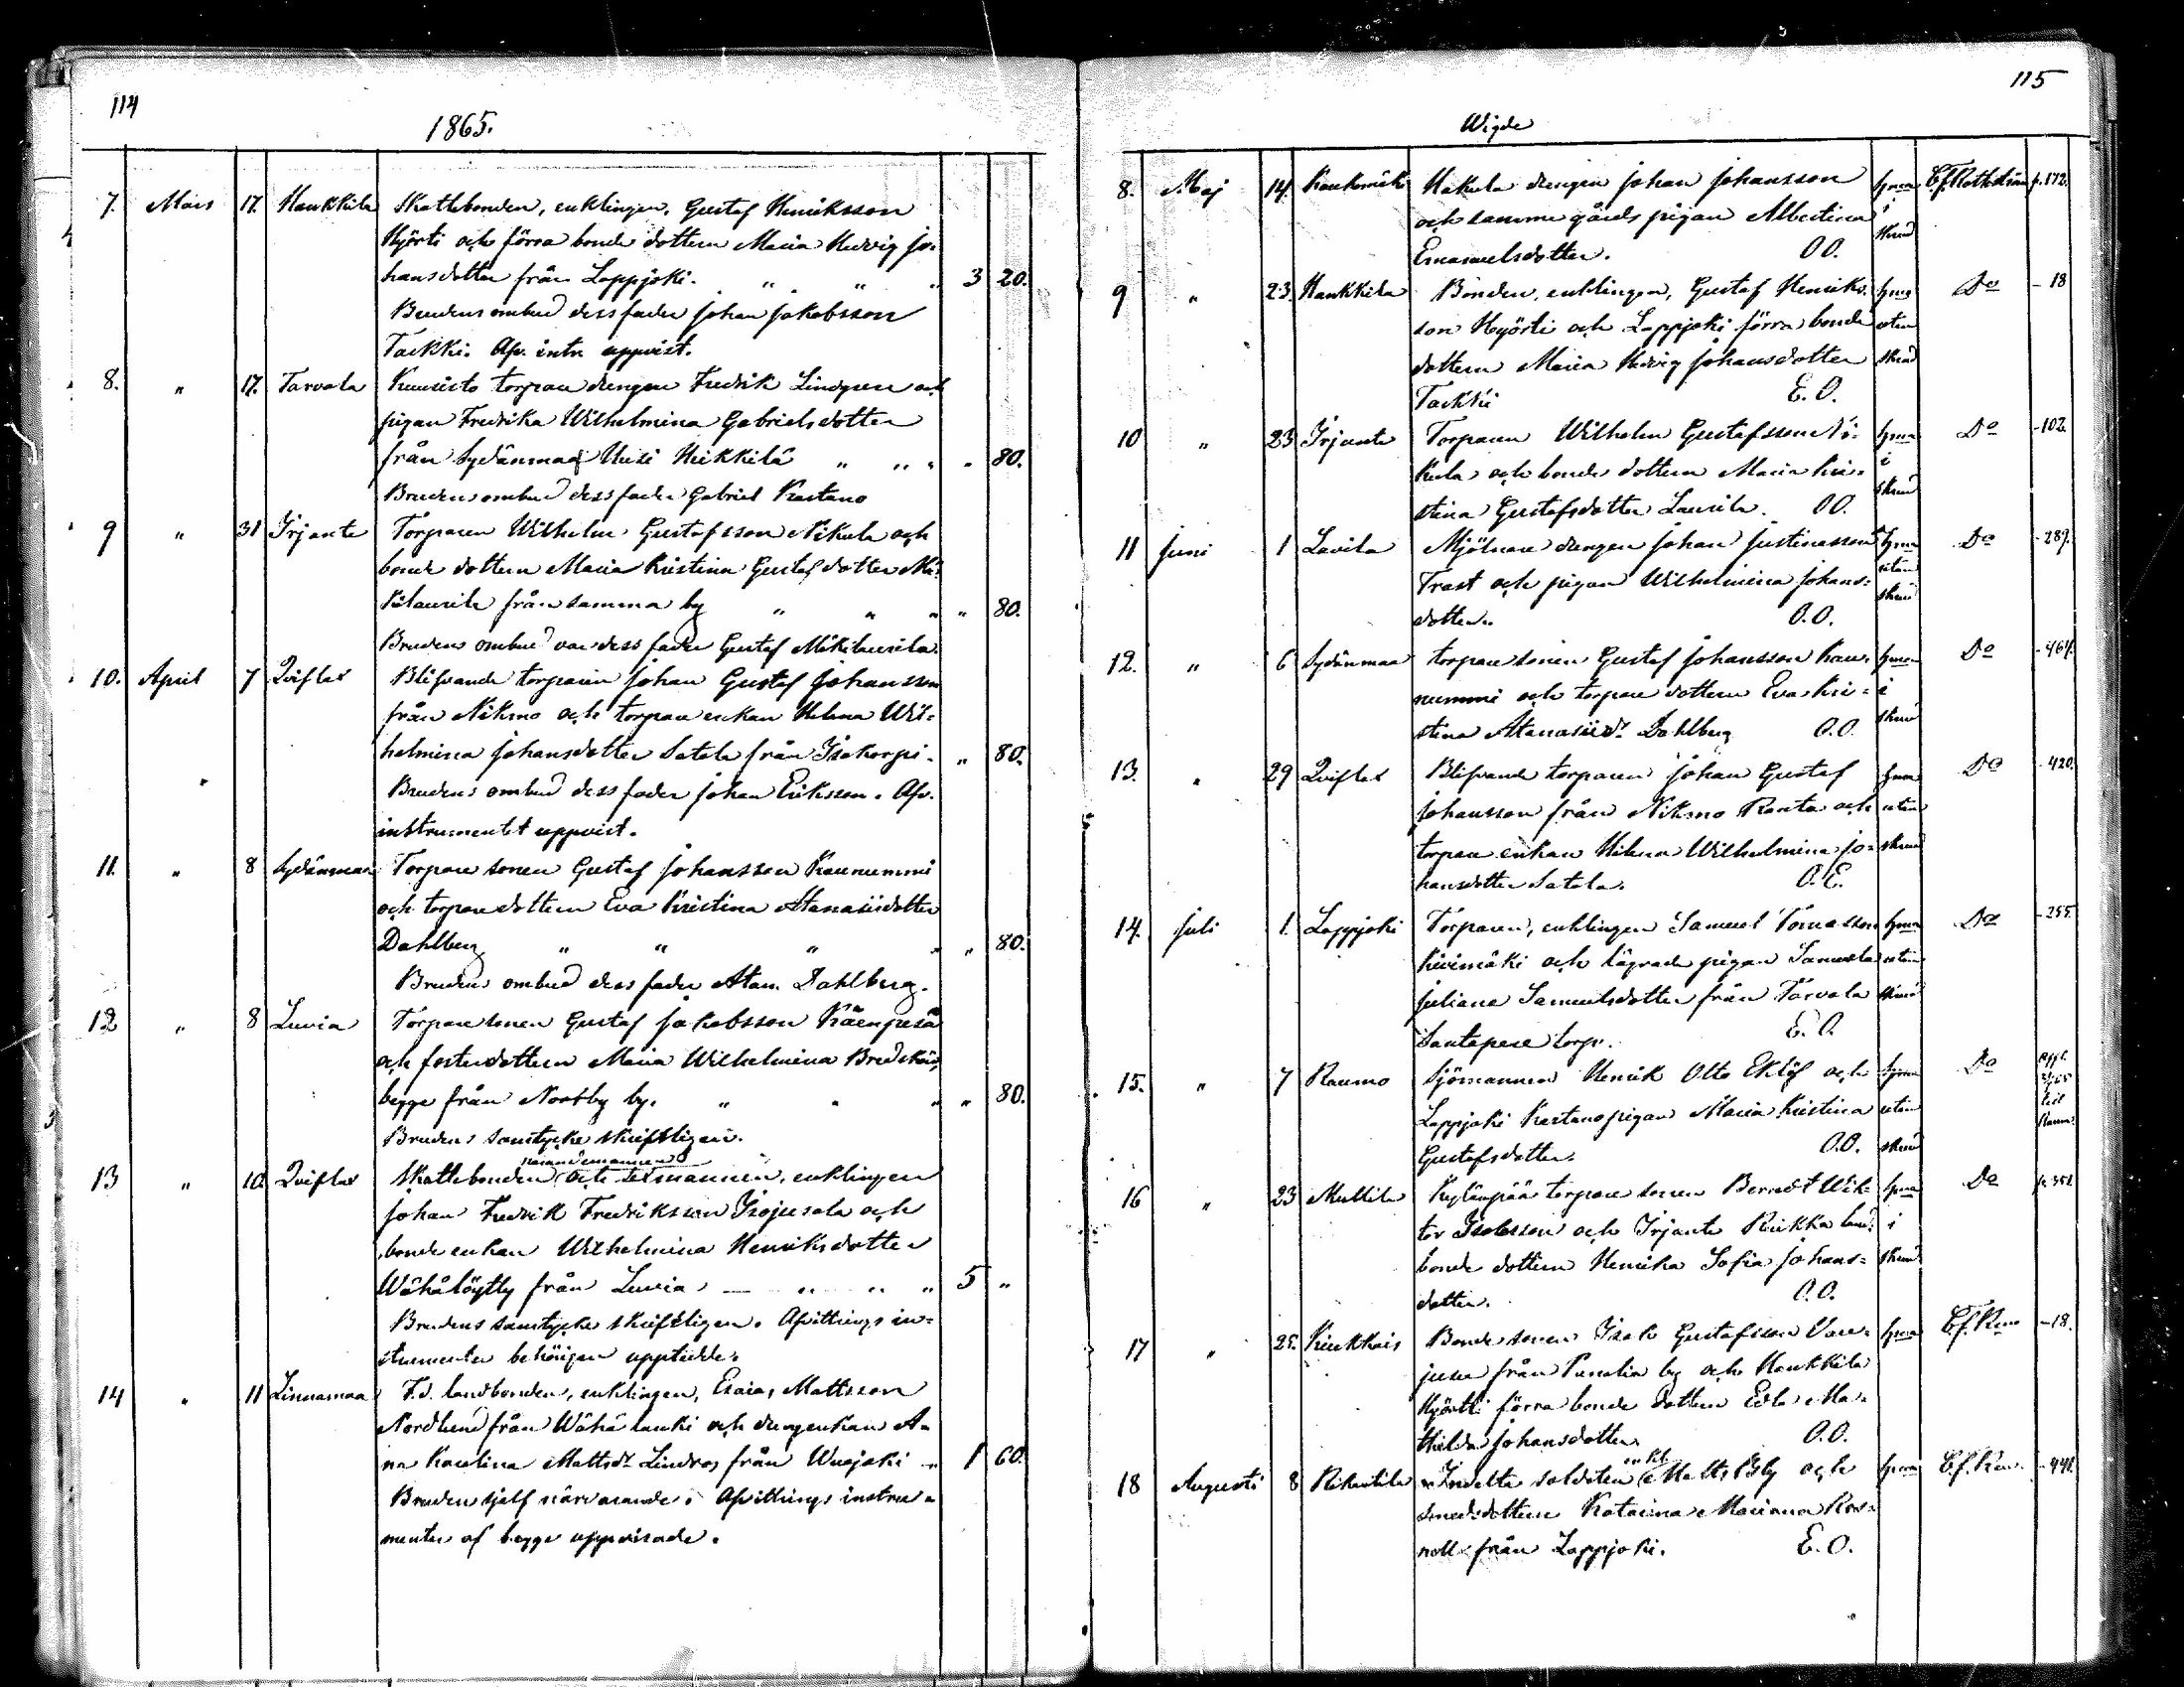 114
1865.
7. Mars 17. Hankkila Skattebonden, enklingen, Gustaf Henriksson
Hyörti och förra bonde dottern Maria Hedvig Jo-
hansdotter från Lappjoki. " " " 3 20.
Brudens ombud dess fader Johan Jakobsson
Tackki. Afv. instr. uppvist.
8. " 17. Tarvola Kuusisto torpare drengen Fredrik Lindgren och
pigan Fredrika Wilhelmina Gabrielsdotter
från Sydänmaa Uusi Heikkilä " " " " 80.
Brudens ombud dess fader Gabriel Krastano
9 " 31 Irjante Torparen Wilhelm Gustafsson Nikula och
bonde dottern Maria Kristina Gustafsdotter Mi-
kilaurila från samma by " " " " 80.
Brudens ombud var dess fader Gustaf Mikilaurila.
10. April 7 Qviflax Blifvande torparen Johan Gustaf Johansson
från Niksmo och torpare enkan Helena Wil-
helmina Johansdotter Satala från Isokorpi. " 80.
Brudens ombud dess fader Johan Eriksson. Afv.
instrumentet uppvist.
11. " 8 Sydänmaa Torpare sonen Gustaf Johansson Kaunummi
och torpare dottern Eva Kristina Atanasiidotter
Dahlberg " " " " " 80.
Brudens ombud dess fader Atan. Dahlberg.
12 " 8 Luvia Torpare sonen Gustaf Jakobsson Käenpesä
och fosterdottern Maria Wilhelmina Bredskär,
begge från Norrby by. " " " " 80.
Brudens samtycke skriftligen.
13 " 10. Qviflax Skattebonden nämndemannen och sexmannen, enklingen
Johan Fredrik Fredriksson Isojusola och
bonde enkan Wilhelmina Henriksdotter
Wähälöytty från Luvia — " " " 5 "
Brudens samtycke skriftligen. Afvittrings in-
strumenter behörigen uppteddes.
14 " 11 Linnamaa F.d. landbonden, enklingen, Esaias Mattsson
Nordlund från Wähä lauki och drengenkan An-
na Karolina Mattsdr Lindros från Wuojoki " 1 60.
Bruden sjelf närvarande. Afvittrings instru-
menter af begge uppvisade.
115
Wigde
8. Maj 14. Kaukomäki Hakula drengen Johan Johansson hema C.f. Rothström p. 172.
och samma gårds pigan Albertina i
Emanuelsdotter. O O. skrud
9 " 23. Hankkila Bonden, enklingen, Gustaf Henriks- hema Do - 18
son Hyörti och Lappjoki förra bonde utan
dottern Maria Hedvig Johansdotter skrud
Tackki E. O.
10 " 23 Irjante Torparen Wilhelm Gustafsson Ni- hema Do - 102.
kula och bonde dottern Maria Kri- i
stina Gustafsdotter Laurila. O O. skrud
11 Juni 1 Lavila Mjölnare drengen Johan Justinasson hema Do - 289.
Trast och pigan Wilhelmina Johans- utan
dotter. O. O. skrud
12. " 6 Sydänmaa torpare sonen Gustaf Johansson Kau- hema Do - 464.
nummi och torpare dottern Eva Kri- i
stina Atanasiidr Dahlberg O. O. skrud
13. " 29 Qviflax Blifvande torparen Johan Gustaf hema Do - 420.
Johansson från Niksmo Ranta och utan
torpare enkan Helena Wilhelmina Jo- skrud
hansdotter Satala. O. E.
14. Juli 1. Lappjoki Torparen, enklingen Samuel Tomasson hema Do - 255.
Kivimäki och lägrade pigan Samuela utan
Juliana Samuelsdotter från Tarvola skrud
Santapere torp. E. O.
15. " 7 Raumo Sjömannen Henrik Otto Eklöf och hema Do
Lappjoki Krastano pigan Maria Kristina utan
Gustafsdotter. O. O. skrud
16 " 23 Mullila Kylänpää torpare sonen Bernedt Wik- hema Do p. 351.
tor Isaksson och Irjante Rinkka land- i
bonde dottern Henrika Sofia Johans- skrud
dotter. O. O.
17 " 25. Kiukkais Bonde sonen Isak Gustafsson Vare- hema C.f. Rm - 18.
jusa från Panelia by och Hankkila
Hyörtti förra bonde dottern Edla Ma-
thilda Johansdotter. O. O.
18 Augusti 8 Rikantila Indelta soldaten enkl. Matts Eby och hema C.f. Rm. - 441.
smedsdottern Katarina Marianna Ros-
noll från Lappjoki. E. O.